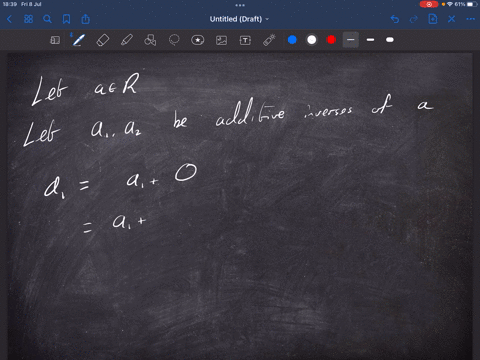 18:39 Fri 8 Jul
61%
Untitled (Draft)
Let a∈R
Let a₁, a₂ be additive inverses of a
a₁ = a₁ + 0
= a₁ +